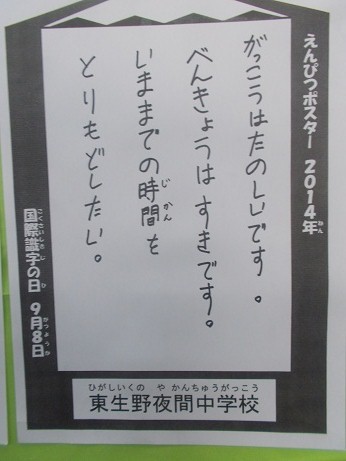 えんぴつポスター 2014年
がっこうはたのしいです。
べんきょうは すきです。
いままでの時間を
とりもどしたい。
国際識字の日 9月8日
東生野夜間中学校